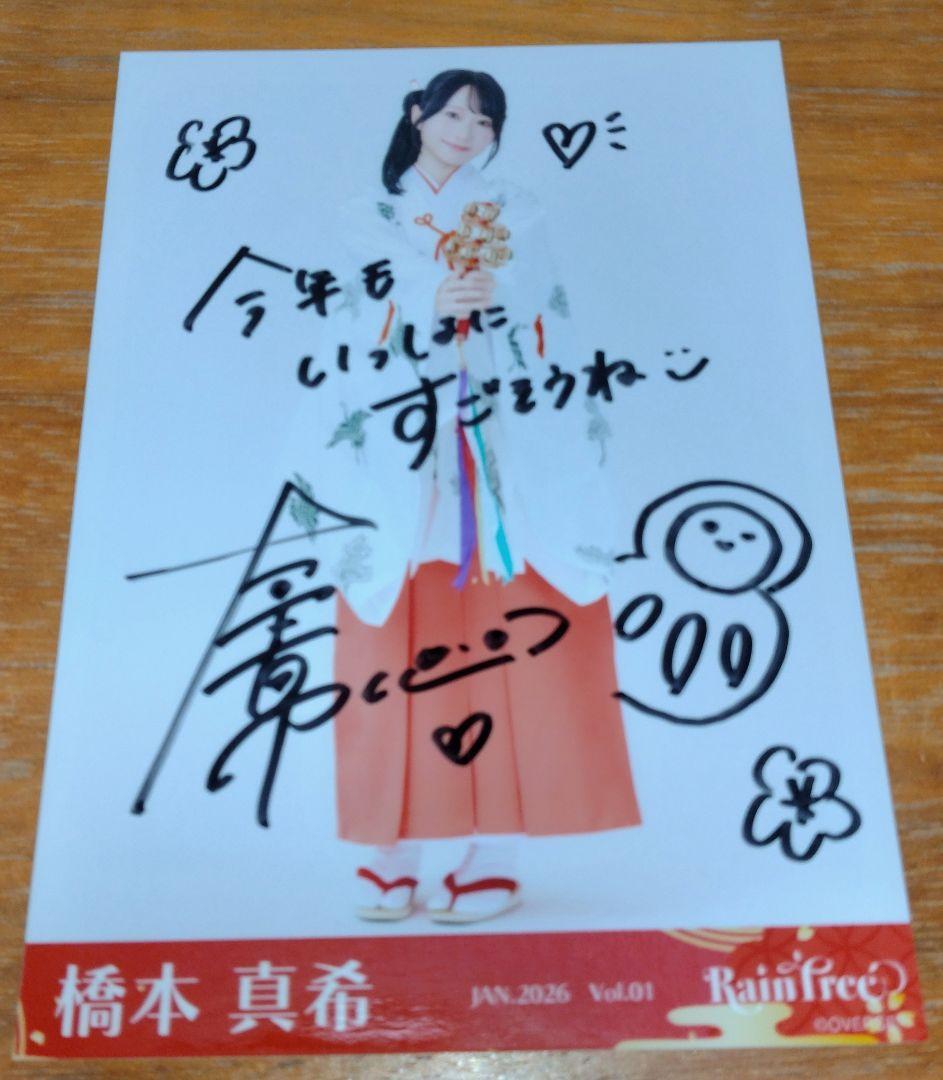 今年も
いっしょに
すごそうね
橋本 真希
JAN.2026 Vol.01
Rain Tree